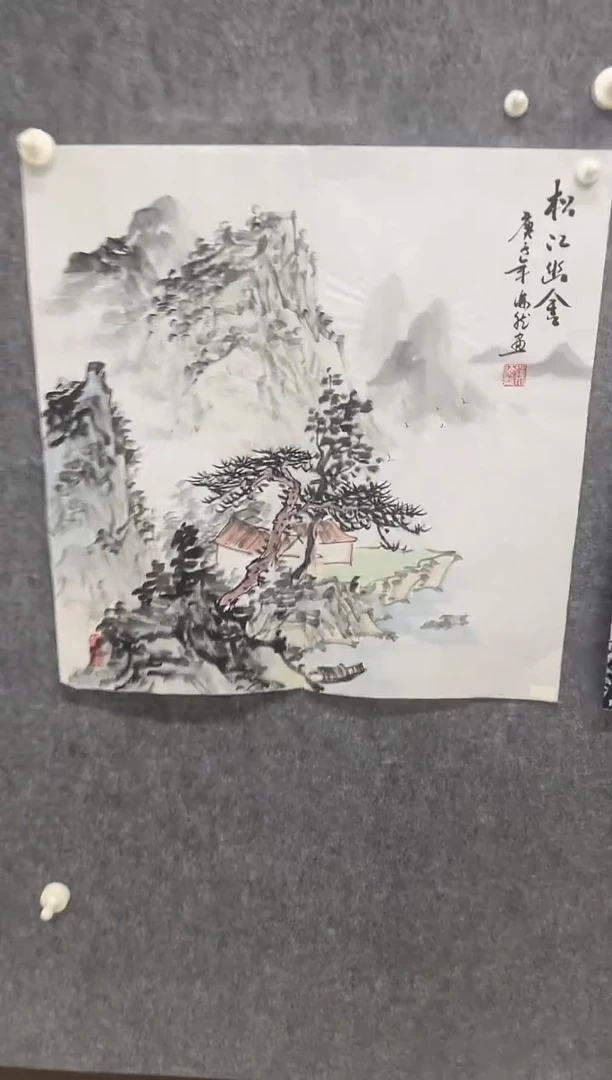 松江幽舍
庚子年海然画